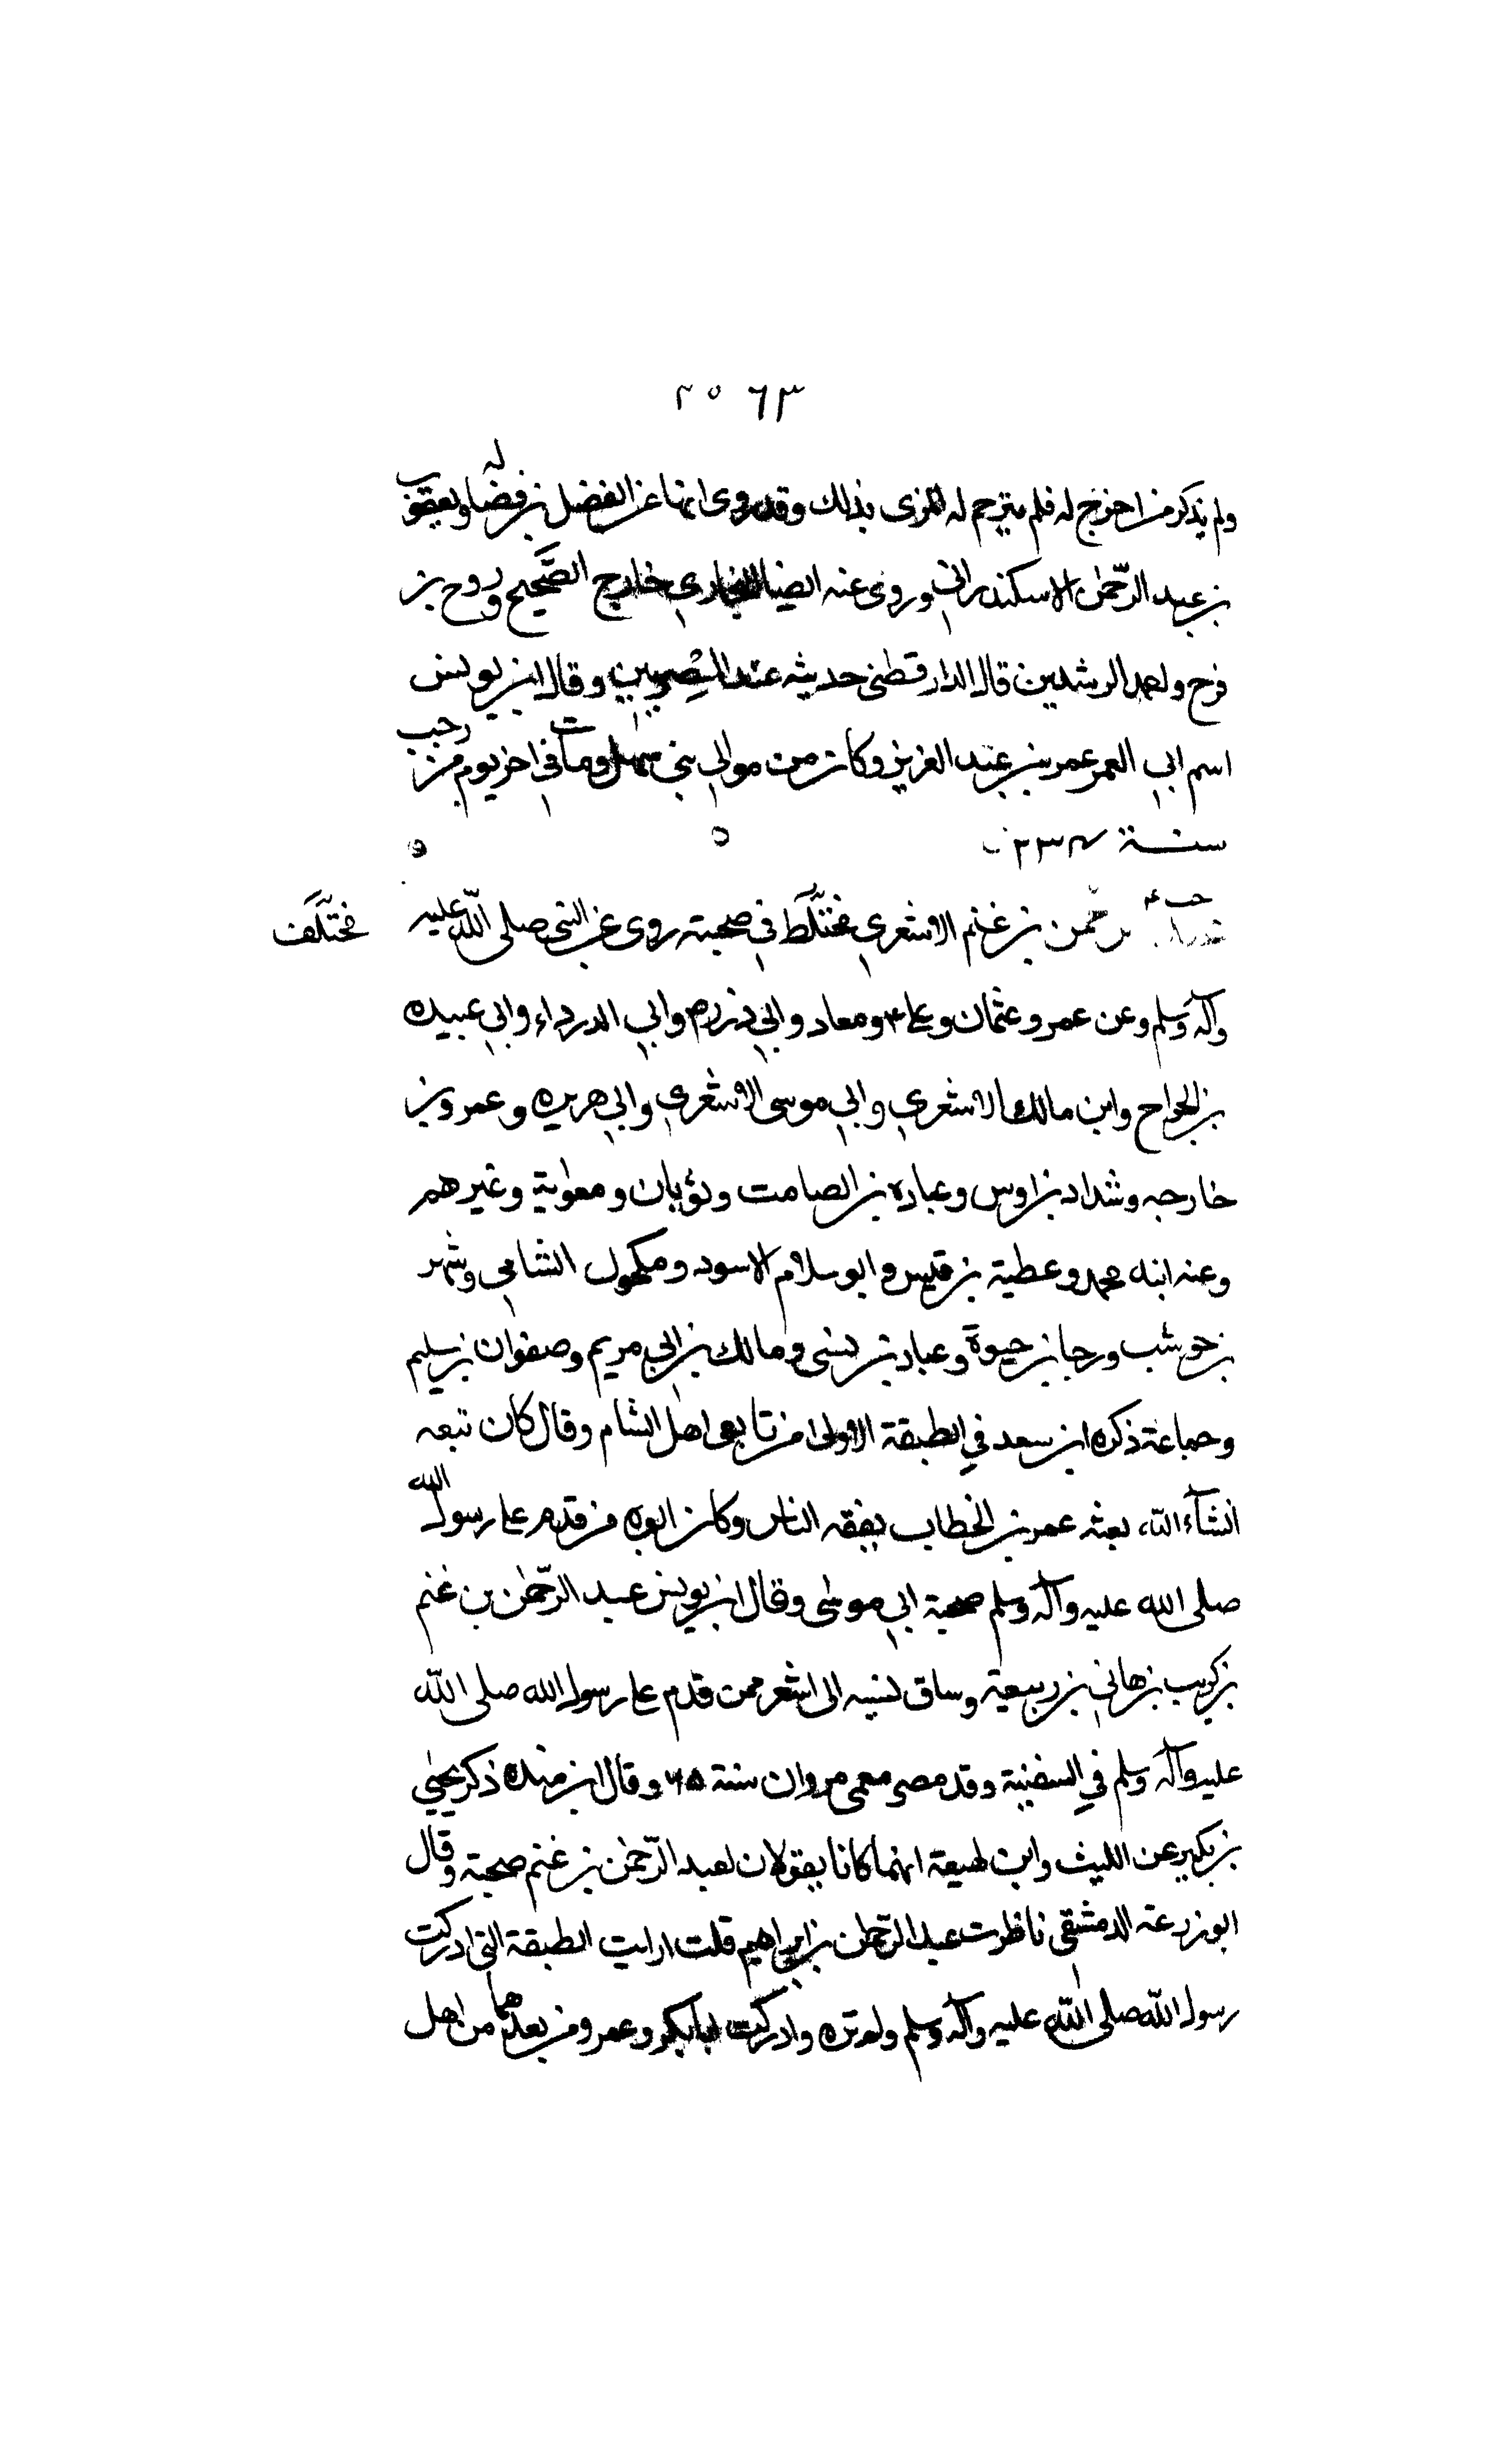 ٢٥٦٣
ولم يذكر من اخرج له فلم يترجم له المزى بذلك وقد روى ايضا عن المفضل بن فضاله ويعقوب
بن عبد الرحمٰن الاسكندراني وروى عنه ايضا البخاري خارج الصحيح وروح بن
فرح واحمد الرشدين قال الدارقطنى حديثه عند المصريين وقال ابن يونس
اسم ابي العمر عمر بن عبد العزيز وكان من موالي بني سهل ومات في اخر يوم من رجب
سنة ٢٣٧
حب ٤
رحمن بن غنم الاشعري مختلط في صحبته روى عن النبى صلى الله عليه
مختلف
وآله وسلم وعن عمر وعثمان وعلى ومعاد وابي ذر وابي الدرداء وابي عبيده
بن الجراح وابن مالك الاشعري وابي موسى الاشعري وابي هريره وعمرو بن
خارجه وشداد بن اوس وعباده بن الصامت وثوبان ومعٰوية وغيرهم
وعنه ابنه محمد وعطية بن قيس وابو سلام الاسود ومكحول الشامي وشهر
بن حوشب ورجا بن حيوة وعباد بن نسى ومالك بن ابي مريم وصفوان بن سليم
وجماعة ذكره ابن سعد في الطبقة الاولى من تابعى اهل الشام وقال كان ثبعه
انشآء الله، بعثه عمر بن الخطاب يفقه الناس وكان ابوه من قدم على رسول الله
صلى الله عليه وآله وسلم صحبة ابي موسٰى وقال ابن يونس عبد الرحمٰن بن غنم
بن كريب بن هاني بن ربيعة وساق نسبه الى اشعر ممن قدم على رسول الله صلى الله
عليه وآله وسلم في السفينة وقد مصر مع مروان سنة ٦٥ وقال ابن منده ذكر يحيٰي
بن بكير عن الليث وابن لهيعة انهما كانا يقولان لعبد الرحمٰن بن غنم صحبة وقال
ابو زرعة الدمشقي ناظرت عبد الرحمٰن بن ابراهيم قلت ارايت الطبقة التي ادركت
رسول الله صلى الله عليه وآله وسلم ولم تره وادركت ابابكر وعمر ومن بعدهما من اهل